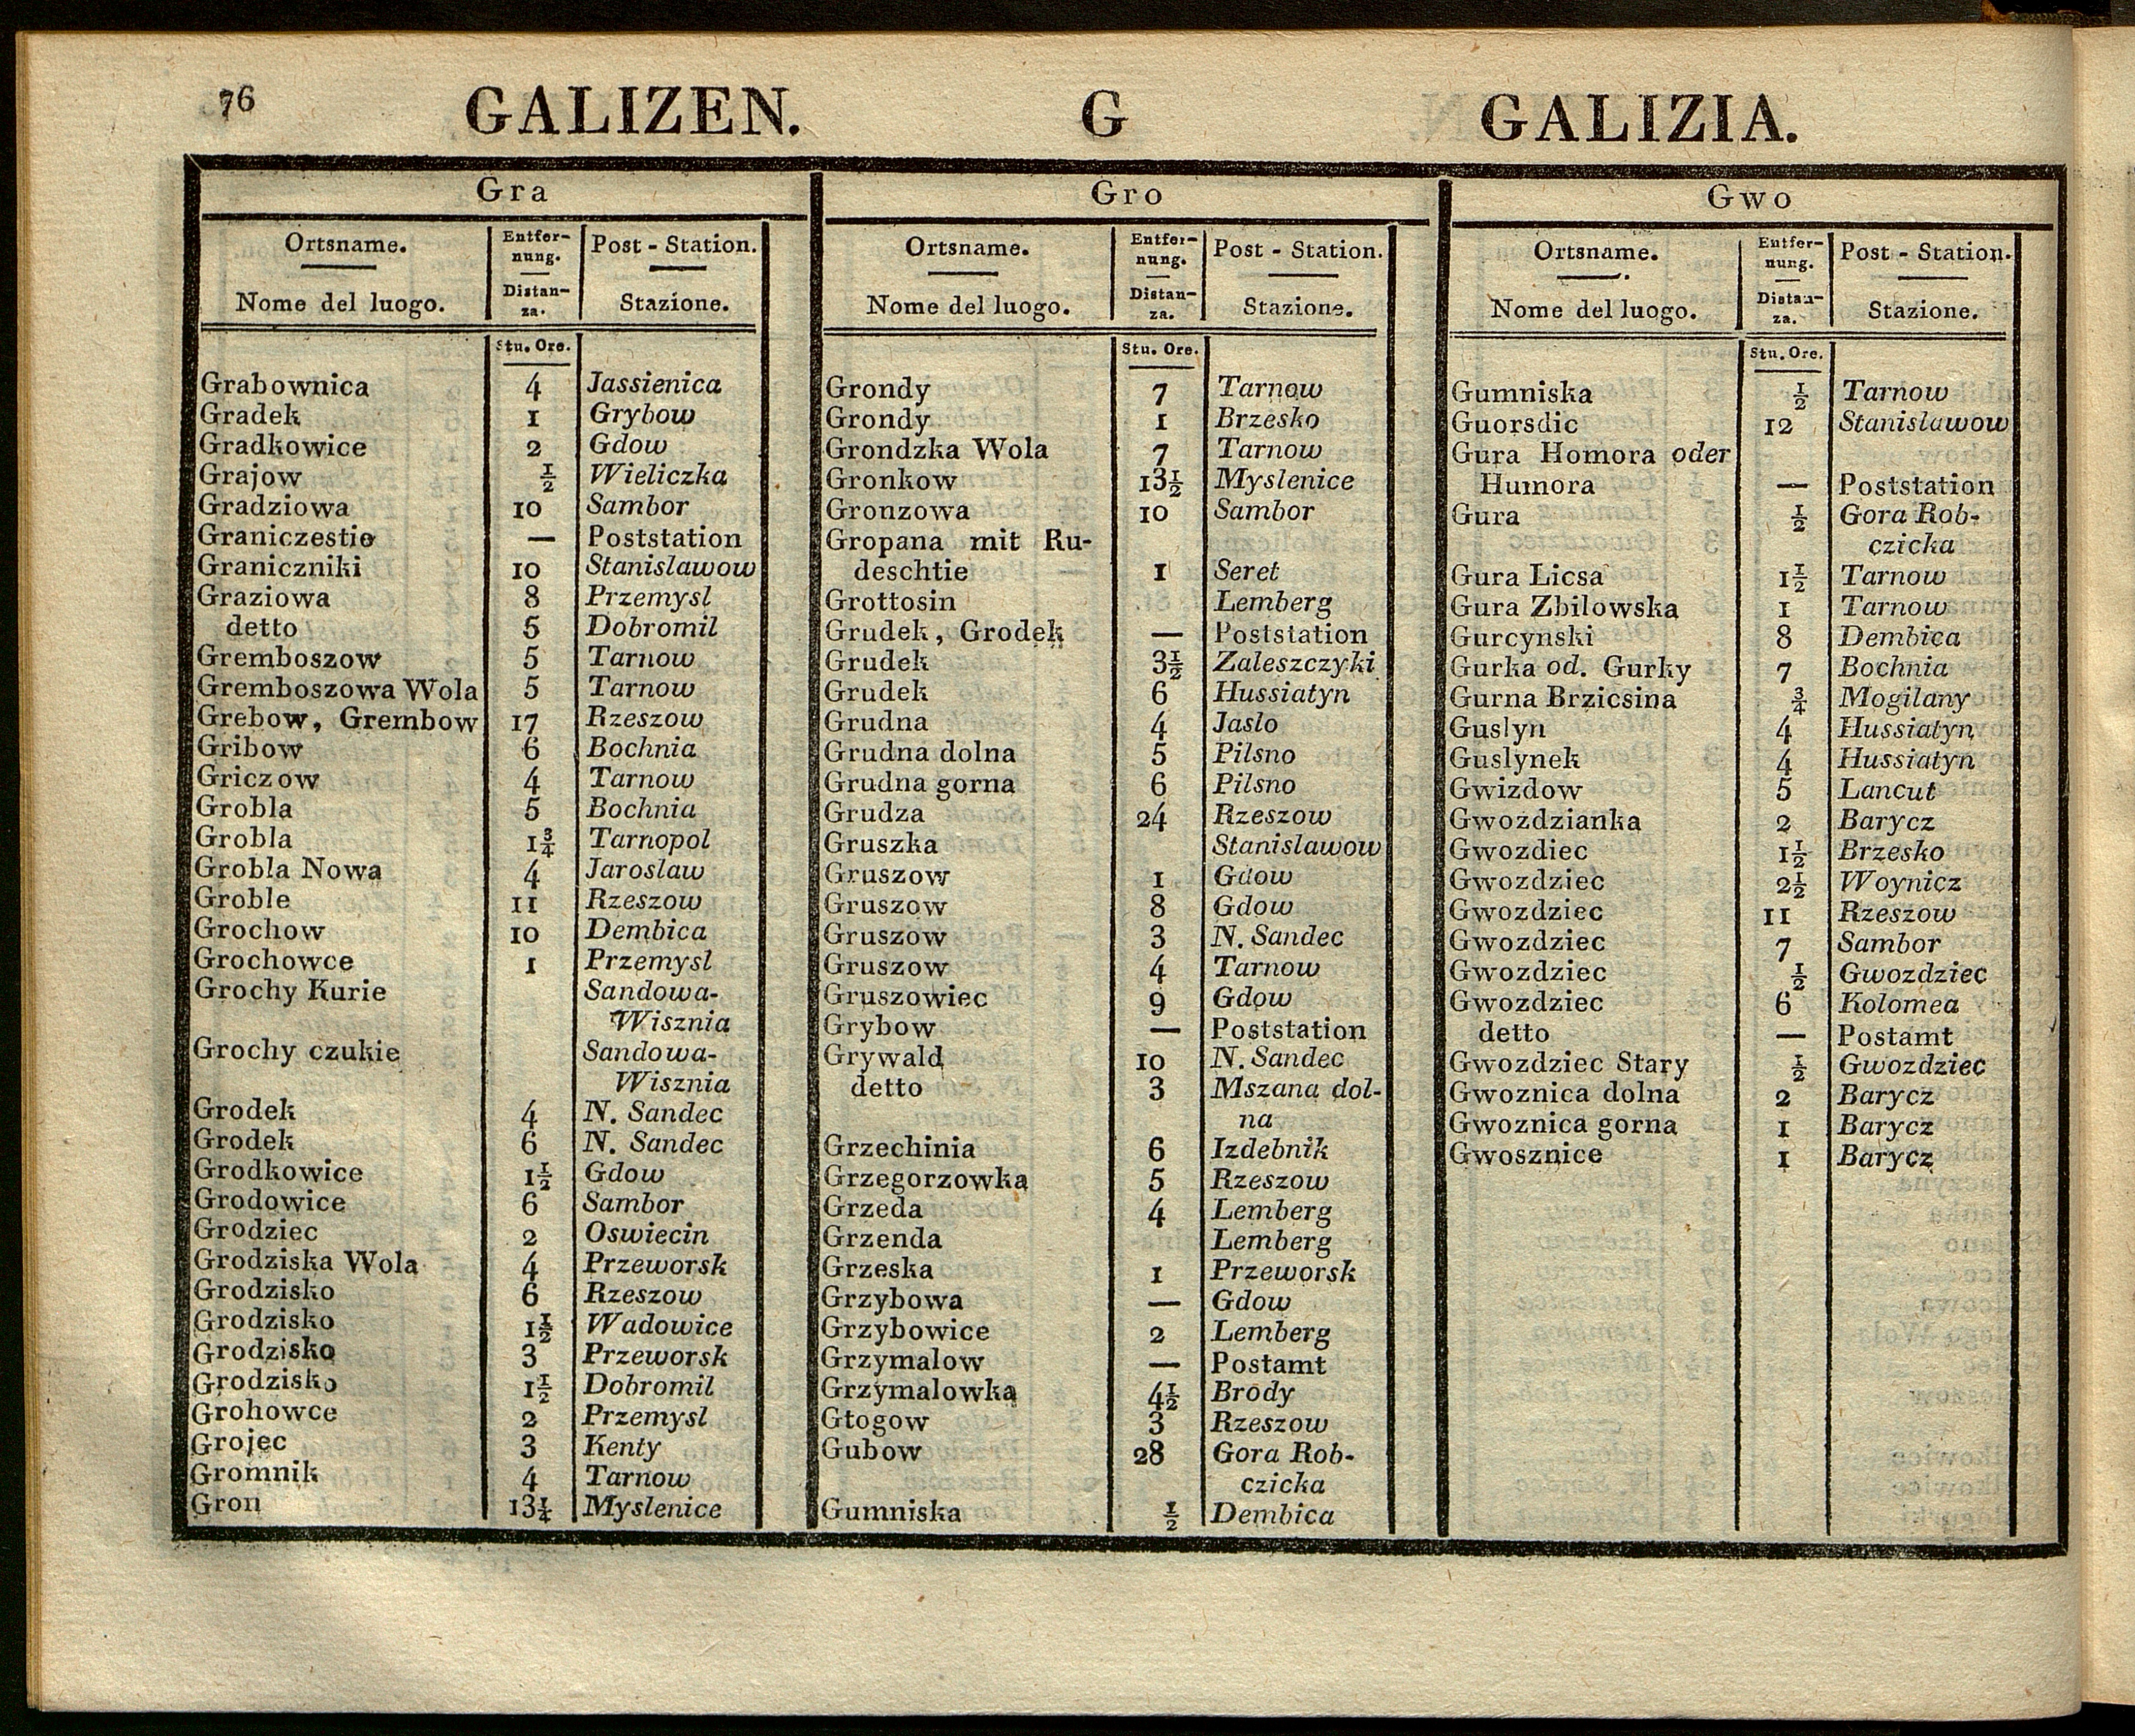 76 GALIZEN. G GALIZIA.
Gra
Ortsname. Entfer- Post - Station.
nung.
Nome del luogo. Distan- Stazione.
za.
Stu. Ore.
Grabownica 4 Jassienica
Gradek 1 Grybow
Gradkowice 2 Gdow
Grajow ½ Wieliczka
Gradziowa 10 Sambor
Graniczestie — Poststation
Graniczniki 10 Stanislawow
Graziowa 8 Przemysl
detto 5 Dobromil
Gremboszow 5 Tarnow
Gremboszowa Wola 5 Tarnow
Grebow, Grembow 17 Rzeszow
Gribow 6 Bochnia
Griczow 4 Tarnow
Grobla 5 Bochnia
Grobla 1¾ Tarnopol
Grobla Nowa 4 Jaroslaw
Groble 11 Rzeszow
Grochow 10 Dembica
Grochowce 1 Przemysl
Grochy Kurie Sandowa-
Wisznia
Grochy czukie Sandowa-
Wisznia
Grodek 4 N. Sandec
Grodek 6 N. Sandec
Grodkowice 1½ Gdow
Grodowice 6 Sambor
Grodziec 2 Oswiecin
Grodziska Wola 4 Przeworsk
Grodzisko 6 Rzeszow
Grodzisko 1½ Wadowice
Grodzisko 3 Przeworsk
Grodzisko 1½ Dobromil
Grohowce 2 Przemysl
Grojec 3 Kenty
Gromnik 4 Tarnow
Gron 13¼ Myslenice
Gro
Ortsname. Entfer- Post - Station.
nung.
Nome del luogo. Distan- Stazione.
za.
Stu. Ore.
Grondy 7 Tarnow
Grondy 1 Brzesko
Grondzka Wola 7 Tarnow
Gronkow 13½ Myslenice
Gronzowa 10 Sambor
Gropana mit Ru-
deschtie 1 Seret
Grottosin Lemberg
Grudek, Grodek — Poststation
Grudek 3½ Zaleszczyki
Grudek 6 Hussiatyn
Grudna 4 Jaslo
Grudna dolna 5 Pilsno
Grudna gorna 6 Pilsno
Grudza 24 Rzeszow
Gruszka Stanislawow
Gruszow 1 Gdow
Gruszow 8 Gdow
Gruszow 3 N. Sandec
Gruszow 4 Tarnow
Gruszowiec 9 Gdow
Grybow — Poststation
Grywald 10 N. Sandec
detto 3 Mszana dol-
na
Grzechinia 6 Izdebnik
Grzegorzowka 5 Rzeszow
Grzeda 4 Lemberg
Grzenda Lemberg
Grzeska 1 Przeworsk
Grzybowa — Gdow
Grzybowice 2 Lemberg
Grzymalow — Postamt
Grzymalowka 4½ Brody
Gtogow 3 Rzeszow
Gubow 28 Gora Rob-
czicka
Gumniska ½ Dembica
Gwo
Ortsname. Entfer- Post - Station.
nung.
Nome del luogo. Distan- Stazione.
za.
Stu. Ore.
Gumniska ½ Tarnow
Guorsdic 12 Stanislawow
Gura Homora oder
Humora — Poststation
Gura ½ Gora Rob-
czicka
Gura Licsa 1½ Tarnow
Gura Zbilowska 1 Tarnow
Gurcynski 8 Dembica
Gurka od. Gurky 7 Bochnia
Gurna Brzicsina ¾ Mogilany
Guslyn 4 Hussiatyn
Guslynek 4 Hussiatyn
Gwizdow 5 Lancut
Gwozdzianka 2 Barycz
Gwozdiec 1½ Brzesko
Gwozdziec 2½ Woynicz
Gwozdziec 11 Rzeszow
Gwozdziec 7 Sambor
Gwozdziec ½ Gwozdziec
Gwozdziec 6 Kolomea
detto — Postamt
Gwozdziec Stary ½ Gwozdziec
Gwoznica dolna 2 Barycz
Gwoznica gorna 1 Barycz
Gwosznice 1 Barycz